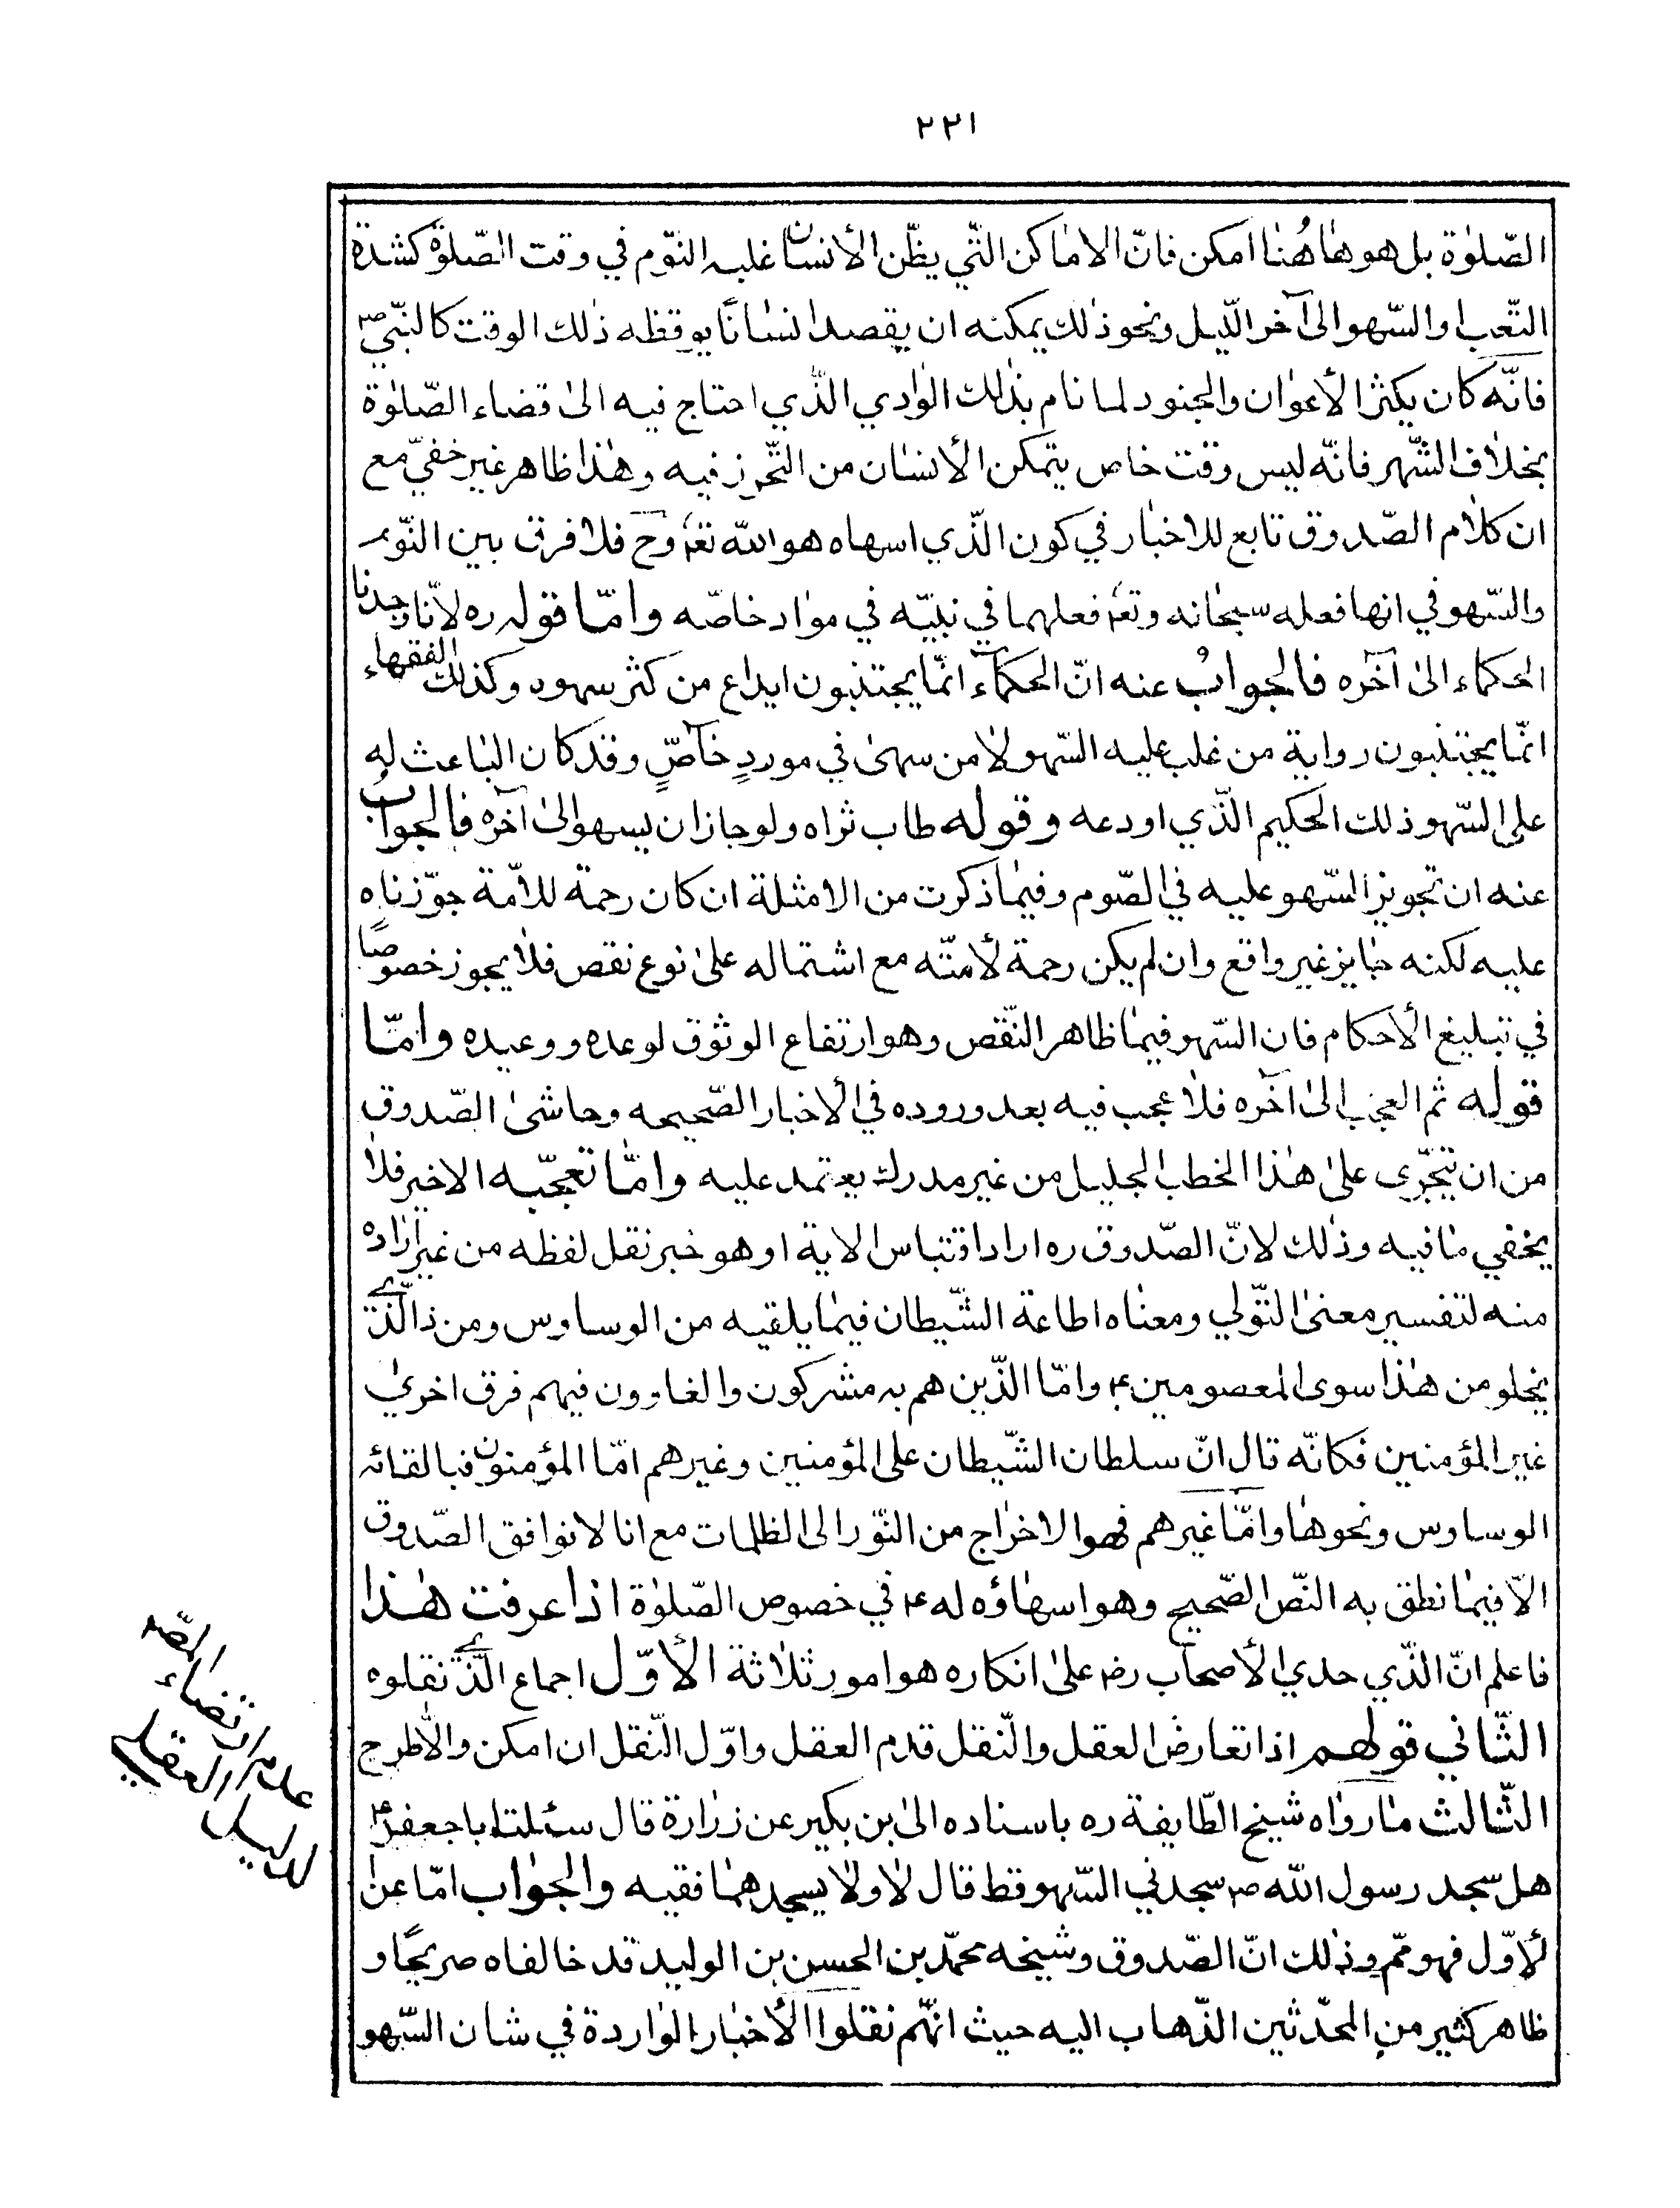 ٢٢١
الصّلوٰة بل هو هاهُنا امكن فانّ الاماكن الّتي يظّن الأنسان غلبه النّوم في وقت الصّلوٰة كشدة
التّعب او السّهو الى آخر اللّيل ونحو ذلك يمكنه ان يقصد انسانًا يوقظه ذلك الوقت كالنبّي ص
فانّه كان يكثر الأعوان والجنود لما نام بذلك الوادي الّذي احتاج فيه الى قضاء الصّلوٰة
بخلاف الشّهر فانّه ليس وقت خاص يتمكن الأنسان من التّحرز فيه وهذا ظاهر غير خفيّ مع
ان كلام الصّدوق تابع للاخبار في كون الّذي اسهاه هو الله تعٰ وح فلا فرق بين النّوم
والسّهو في انها فعله سبحانه وتعٰ فعلهما في نبيّه في مواد خاصّه وامّا قوله ره لأنّا وجدنا
الحكماء الى آخره فالجوابُ عنه انّ الحكماء انّما يجتنبون ايداع من كثر سهوه وكذلك الفقهاء
انّما يجتنبون رواية من غلب عليه السّهو لا من سهى في موردٍ خاصٍّ وقد كان الباعث له
على السّهو ذلك الحكيم الّذي اودعه وقوله طاب ثراه ولو جاز ان يسهو الى آخره فالجواب
عنه ان تجويز السّهو عليه في الصّوم وفيما ذكرت من الامثلة ان كان رحمة للأمّة جوّزناه
عليه لكنه جايز غير واقع وان لم يكن رحمة لأمتّه مع اشتماله على نوع نقص فلا يجوز خصوصًا
في تبليغ الأحكام فان السّهو فيها ظاهر النّقص وهو ارتفاع الوثوق لوعده ووعيده وامّا
قوله ثم العجب الى آخره فلا عجب فيه بعد وروده في الأخبار الصّحيحه وحاشى الصّدوق
من ان يتجرّى على هذا الخطب الجليل من غير مدرك يعتمد عليه وامّا تعجّبه الاخير فلا
يخفي ما فيه وذلك لانّ الصّدوق ره اراد اقتباس الاية او هو خبر نقل لفظه من غير اراده
منه لتفسير معنى التّولي ومعناه اطاعة الشّيطان فيما يلقيه من الوساوس ومن ذا الّذي
يخلو من هذا سوى المعصومين ع وامّا الّذين هم به مشركون والغاوون فيهم فرق اخرى
غير المؤمنين فكانّه قال انّ سلطان الشّيطان على المؤمنين وغيرهم امّا المؤمنون فبالقائه
الوساوس ونحوها وامّا غيرهم فهو الاخراج من النّور الى الظلمات مع انا لا نوافق الصّدوق
الّا فيما نطق به النّص الصّحيح وهو اسهاؤه له ع في خصوص الصّلوٰة اذا عرفت هذا
فاعلم انّ الّذي حدي الأصحاب رض على انكاره هو امور ثلاثة الأوّل اجماع الّذي نقلوه
الثّاني قولهم اذا تعارض العقل والنّقل قدم العقل واوّل النّقل ان امكن والّا طرح
الثّالث ما رواه شيخ الطّايفة ره باسناده الى بن بكير عن زرارة قال سئلت ابا جعفر ع
هل سجد رسول الله ص سجدتي السّهو قط قال لا ولا يسجدهما فقيه والجواب امّا عن
لأوّل فهو مم وذلك انّ الصّدوق وشيخه محمّد بن الحسن بن الوليد قد خالفاه صريحًا و
ظاهر كثير من المحدّثين الذّهاب اليه حيث انهّم نقلوا الأخبار الواردة في شان السّهو
عدم اقتضاء
الدليل العقلي